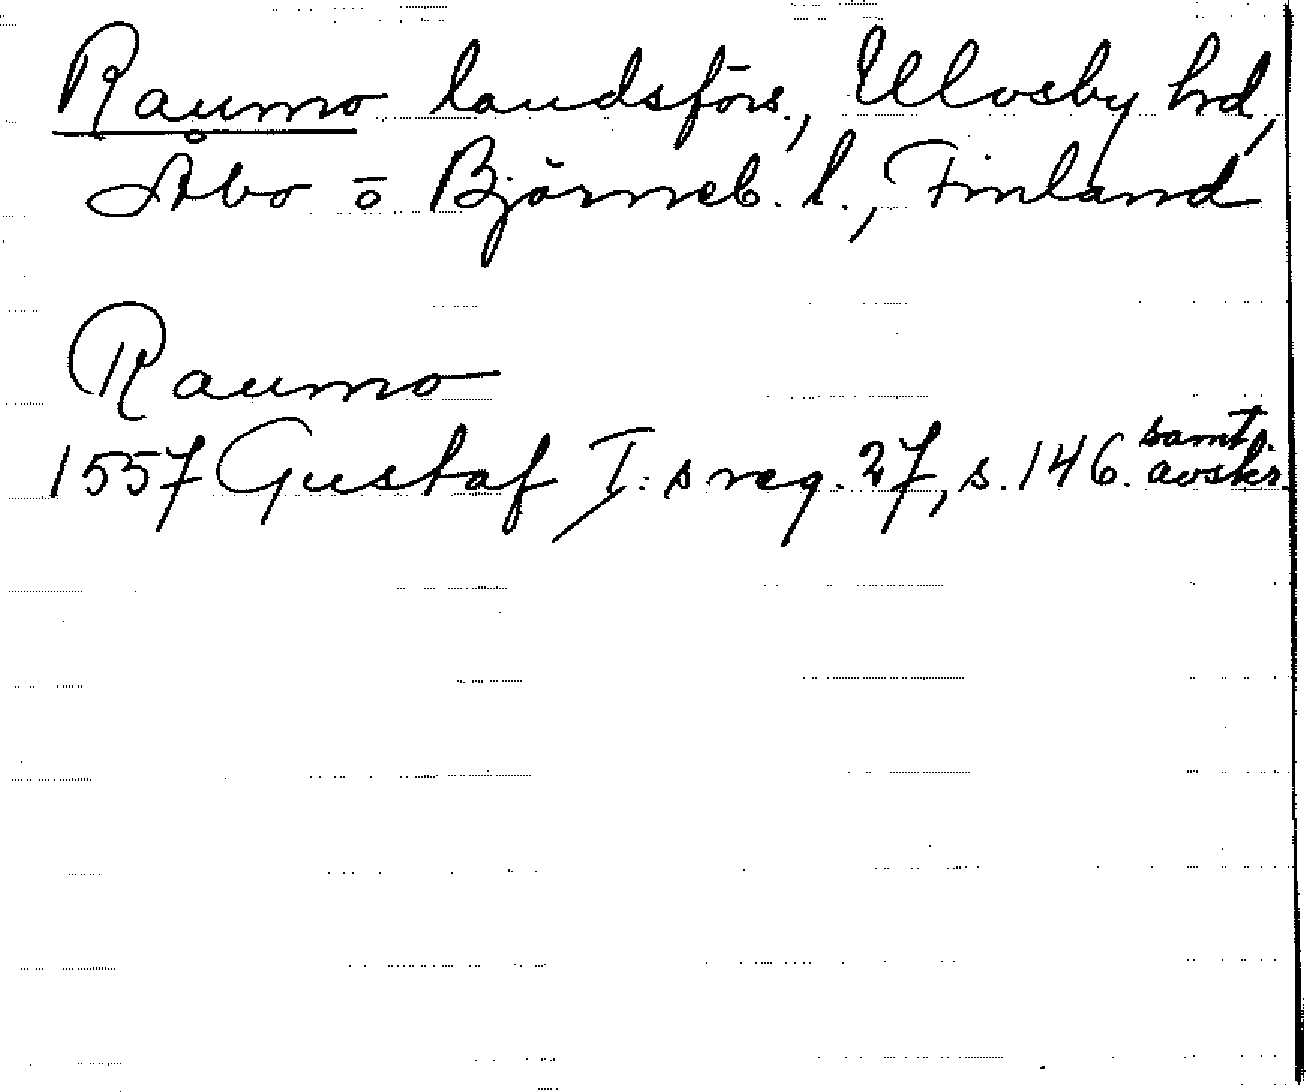 Raumo landsförs., Ulvsby hd,
Åbo o Björneb. l., Finland
Raumo
1557 Gustaf I:s reg. 27, s. 146. samt. avskr.